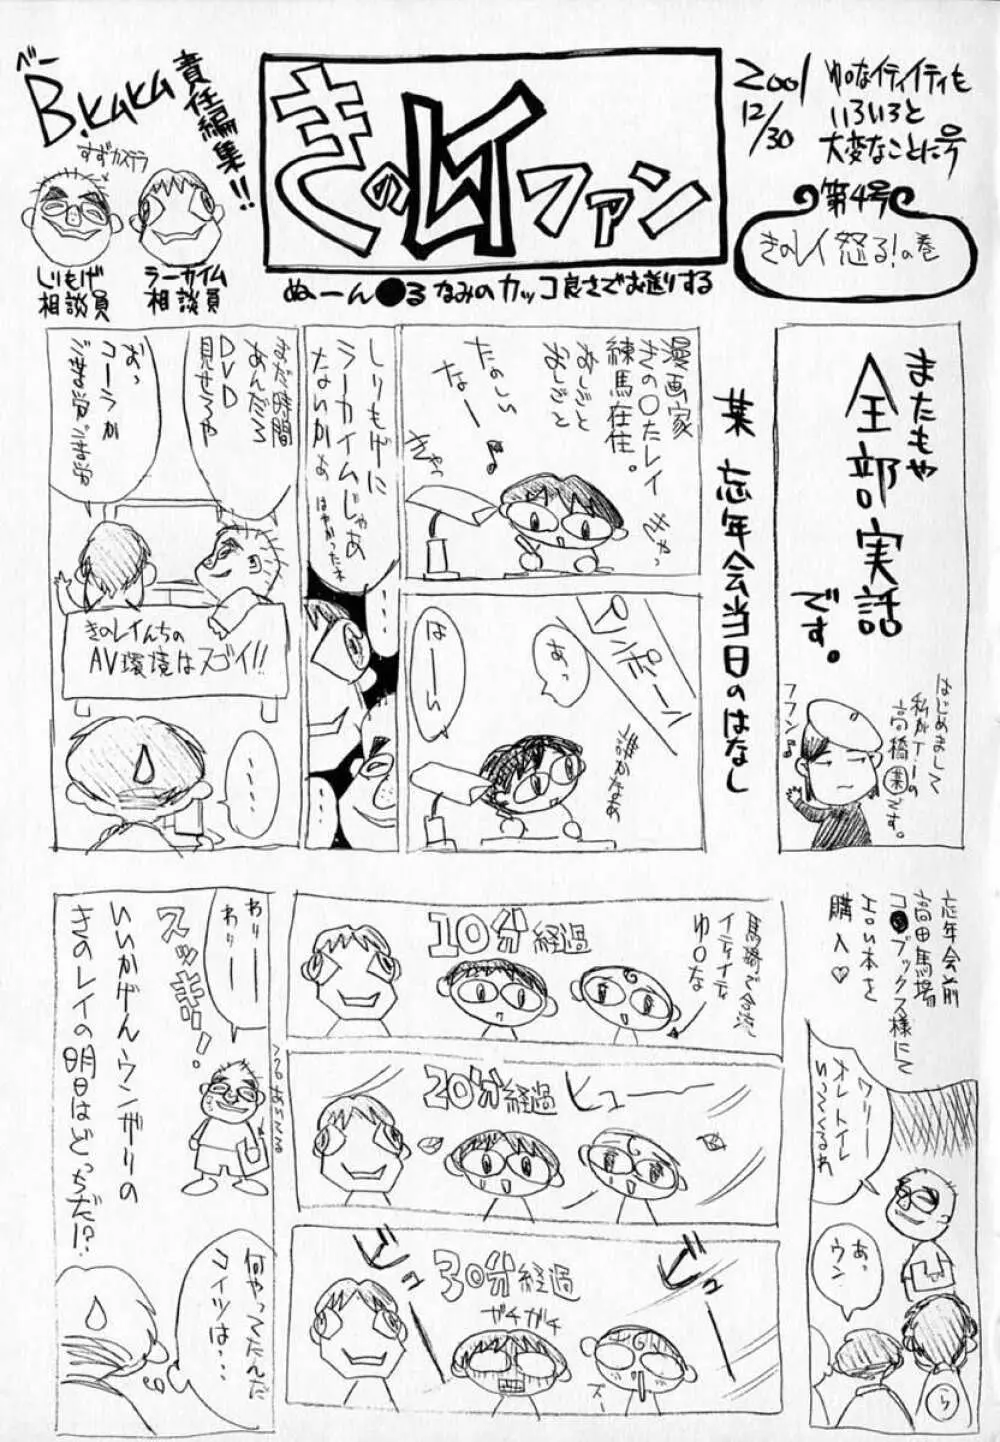 2001
12/30
ゆ○なイティイティも
いろいろと
大変なことに号
第4号
きのレイ怒る!の巻
きのレイファン
ぬーん●るなみのカッコ良さでお送りする
責任編集!!
べー
B.kaka
すずカステラ
ラーカイム
相談員
しりもげ
相談員
またもや
全部実話
です。
はじめまして
私がT-1の
高橋業です。
フフン♪
某 忘年会当日のはなし
漫画家
きの○たレイ
練馬在住。
おしごと
おしごと
たのしい
なー♪
きゃっ
きゃっ
ピンポーン
あっ
誰かなぁ
はーい
しりもげに
ラーカイムじゃあ
ないかぁ
はやかったネ
……
まだ時間
あんだろ
DVD
見せろや
おっ
コーラか
ご苦労ご苦労
きのレイんちの
AV環境はスゴイ!!
……
忘年会前
高田馬場
コ●ブックス様にて
エロい本を
購入♡
ワリー
オレトイレ
いってくるわ
あっ
ウン
ら
10分経過
馬場で合流
イティイティな
ゆ○な
20分経過
ヒュー
30分経過
ビュー
ガチガチ
わりー
わりー
スッキリー!
何やってたんだ
コイツは…
いいかげんウンザリの
きのレイの明日はどっちだ!?